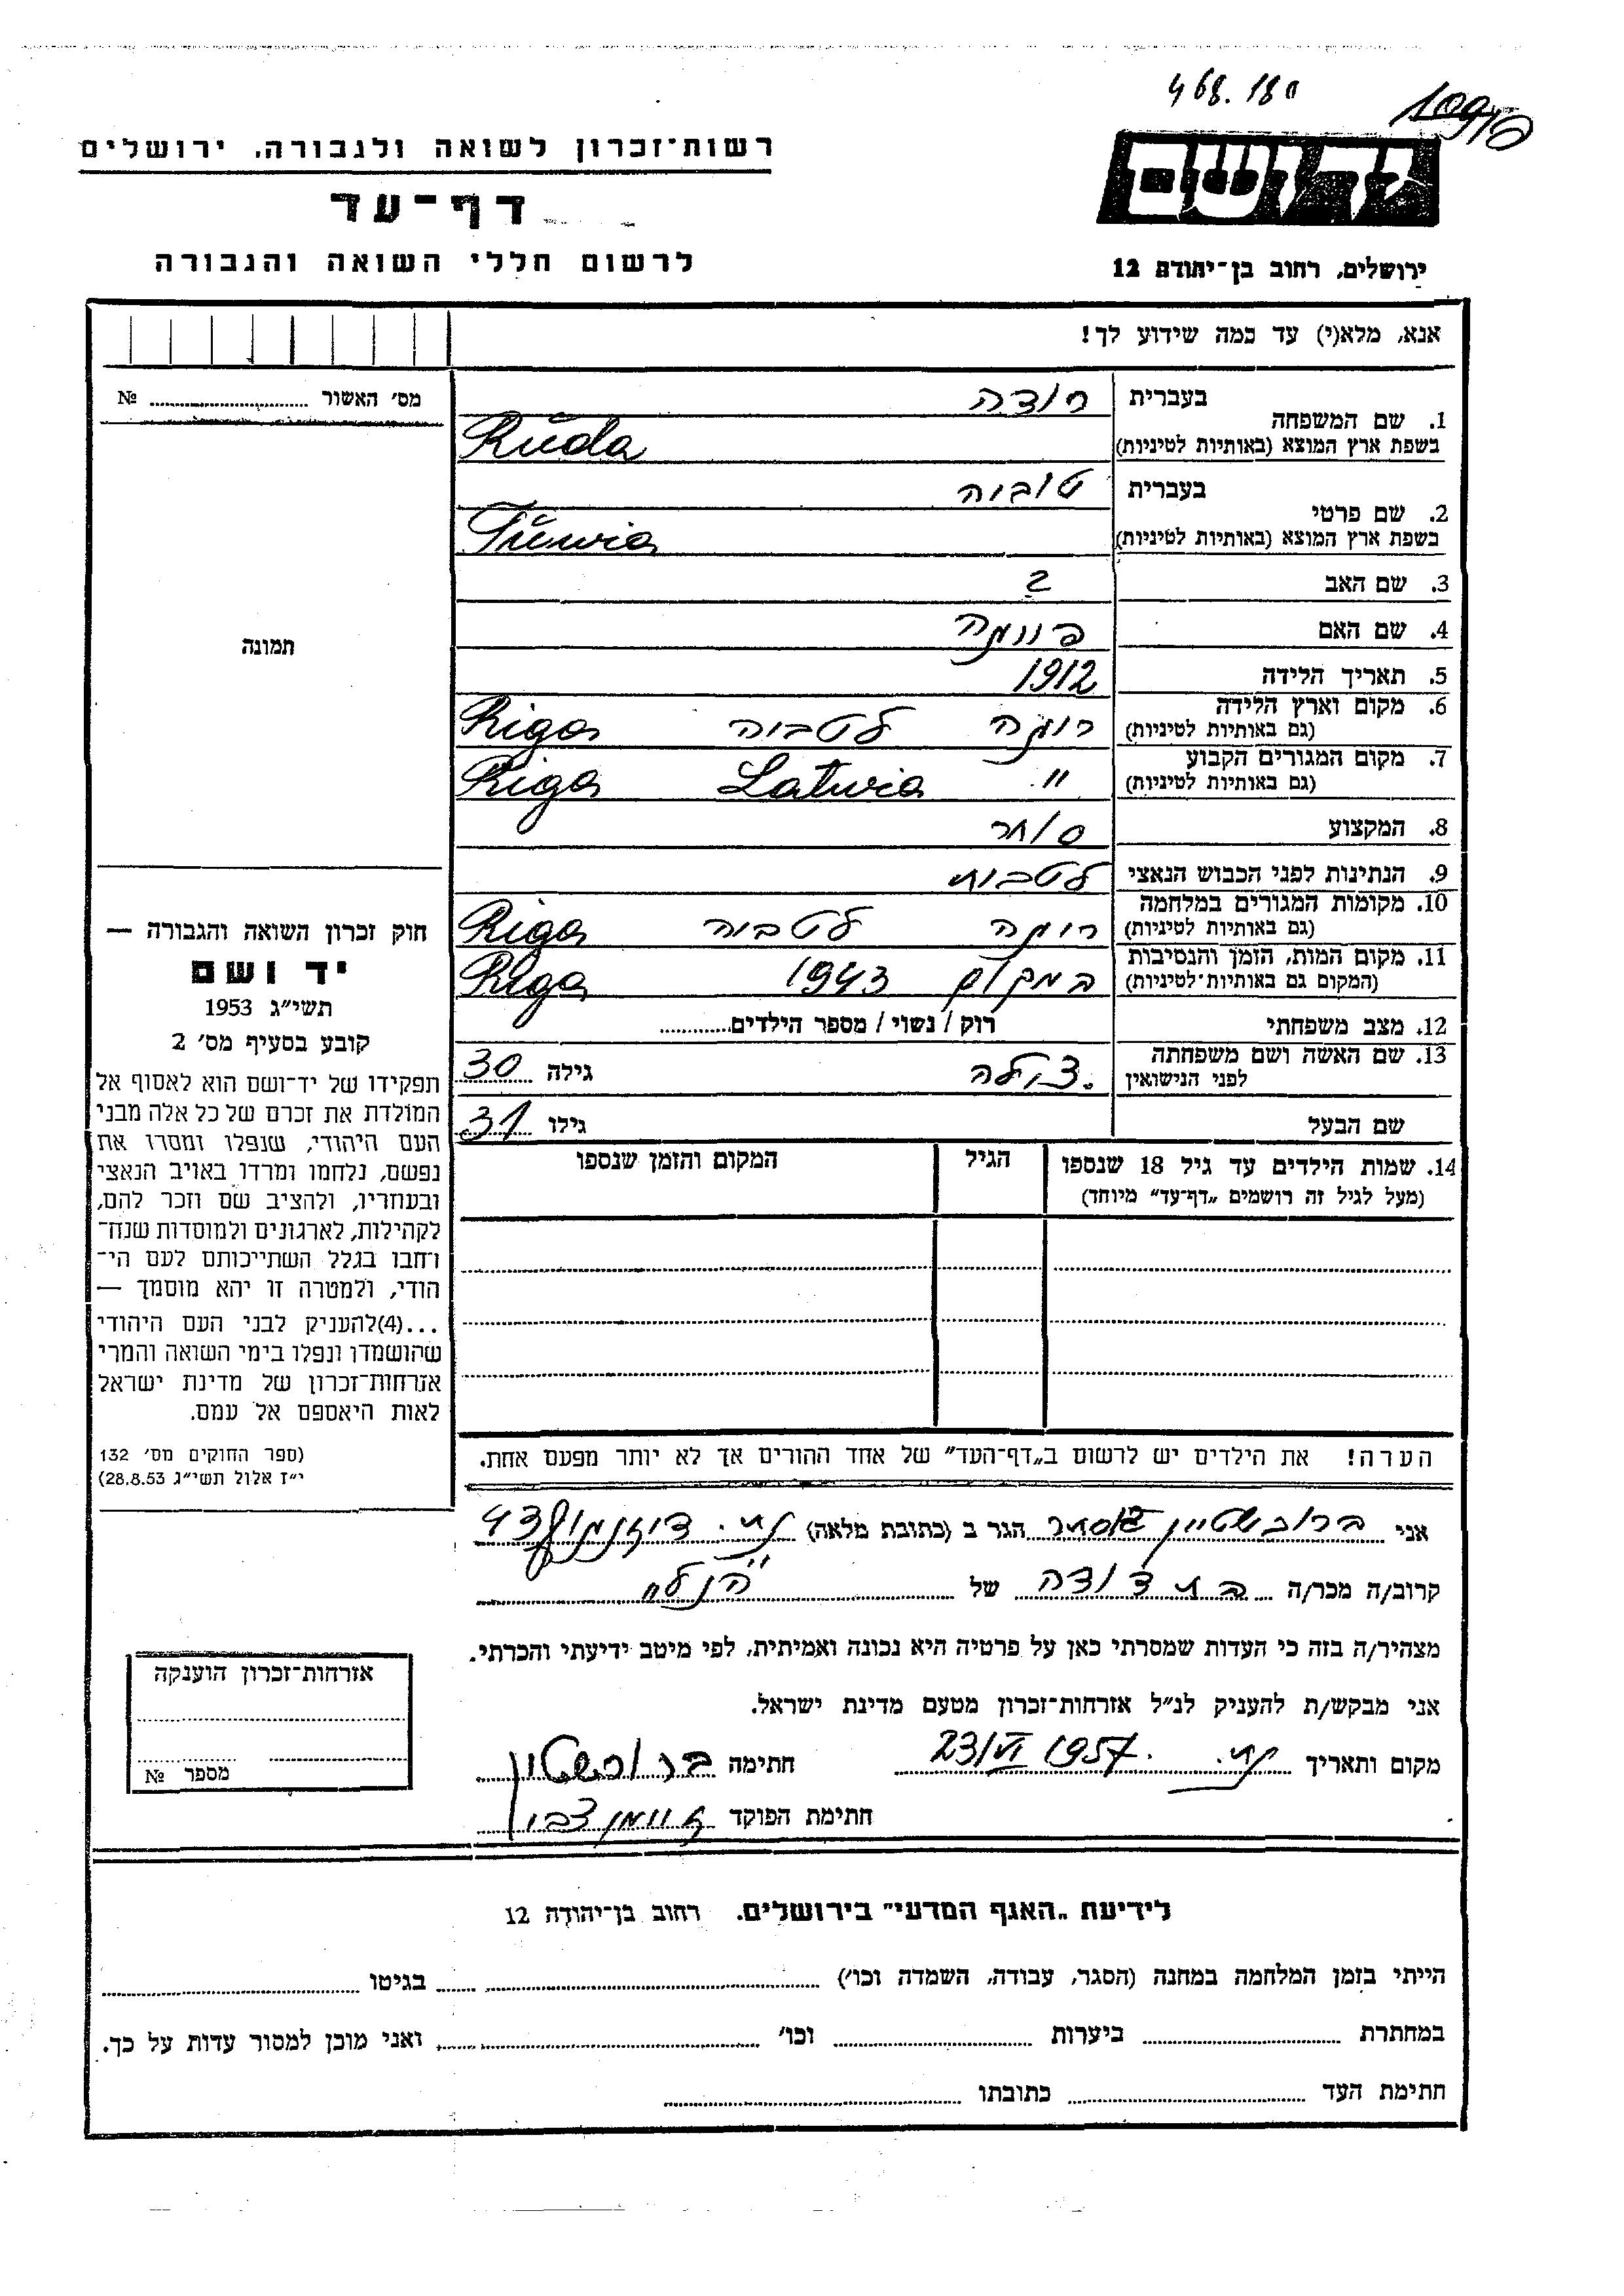 468.180
רשות־זכרון לשואה ולגבורה, ירושלים
דף־עד
לרשום חללי השואה והגבורה
יד ושם
ירושלים, רחוב בן־יהודה 12
אנא, מלא(י) עד כמה שידוע לך!
מס' האשור ........ №
תמונה
1. שם המשפחה בעברית רודה
בשפת ארץ המוצא (באותיות לטיניות) Rŭda
2. שם פרטי בעברית טוביה
בשפת ארץ המוצא (באותיות לטיניות) Tŭwia
3. שם האב ?
4. שם האם
5. תאריך הלידה 1912
6. מקום וארץ הלידה (גם באותיות לטיניות) ריגה לטביה Riga
7. מקום המגורים הקבוע (גם באותיות לטיניות) " Latwia Riga
8. המקצוע סוחר
9. הנתינות לפני הכבוש הנאצי לטבית
10. מקומות המגורים במלחמה (גם באותיות לטיניות) ריגה לטביה Riga
11. מקום המות, הזמן והנסיבות (המקום גם באותיות־לטיניות) במקום 1943 Riga
12. מצב משפחתי רוק / נשוי / מספר הילדים........
13. שם האשה ושם משפחתה לפני הנישואין צילה גילה 30
שם הבעל גילו 31
14. שמות הילדים עד גיל 18 שנספו הגיל המקום והזמן שנספו
(מעל לגיל זה רושמים „דף־עד" מיוחד)
חוק זכרון השואה והגבורה —
יד ושם
תשי"ג 1953
קובע בסעיף מס' 2
תפקידו של יד־ושם הוא לאסוף אל
המולדת את זכרם של כל אלה מבני
העם היהודי, שנפלו ומסרו את
נפשם, נלחמו ומרדו באויב הנאצי
ובעוזריו, ולהציב שם וזכר להם,
לקהילות, לארגונים ולמוסדות שנח־
רחבו בגלל השתייכותם לעם הי־
הודי, ולמטרה זו יהא מוסמך —
...(4)להעניק לבני העם היהודי
שהושמדו ונפלו בימי השואה והמרי
אזרחות־זכרון של מדינת ישראל
לאות היאספם אל עמם.
(ספר החוקים מס' 132
י"ז אלול תשי"ג 28.8.53)
הערה! את הילדים יש לרשום ב„דף־העד" של אחד ההורים אך לא יותר מפעם אחת.
אני אסתר הגר ב (כתובת מלאה) ת. דיזנגוף 43
קרוב/ה מכר/ה בת דודה של הנ"ל
מצהיר/ה בזה כי העדות שמסרתי כאן על פרטיה היא נכונה ואמיתית, לפי מיטב ידיעתי והכרתי.
אני מבקש/ת להעניק לנ"ל אזרחות־זכרון מטעם מדינת ישראל.
מקום ותאריך ת. 23/VI 1957 חתימה
חתימת הפוקד
אזרחות־זכרון הוענקה
מספר №
לידיעת „האגף המדעי" בירושלים. רחוב בן־יהודה 12
הייתי בזמן המלחמה במחנה (הסגר, עבודה, השמדה וכו') ........ בגיטו ........
במחתרת ........ ביערות ........ וכו' ........ ואני מוכן למסור עדות על כך.
חתימת העד ........ כתובתו ........